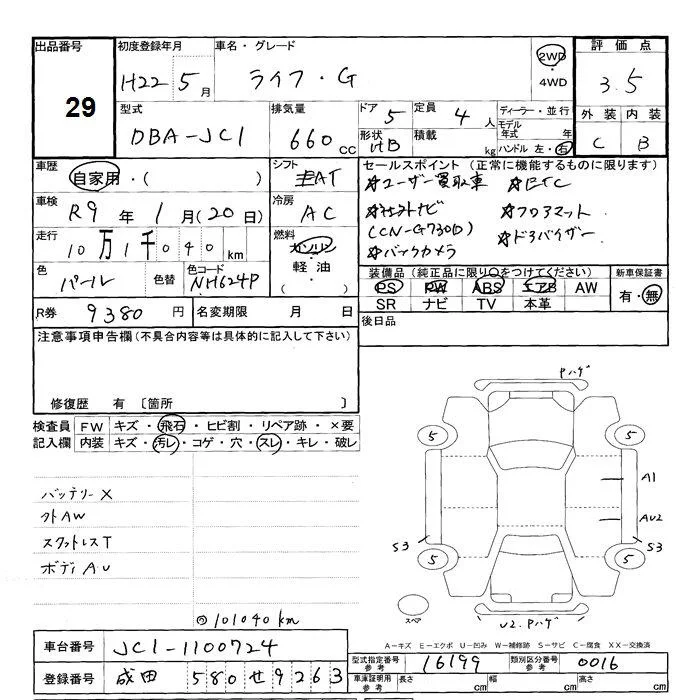 出品番号 29
初度登録年月 H22 5月
車名・グレード ライフ・G
2WD・4WD
評価点 3.5
型式 DBA-JC1
排気量 660cc
ドア 5
形状 HB
定員 4人
積載 kg
ディーラー・並行
モデル年式 年
ハンドル 左・右
外装 C
内装 B
車歴 自家用・( )
シフト AT
車検 R9年 1月(20日)
冷房 AC
走行 10万1千040km
燃料 ガソリン・軽油・( )
色 パール 色替
色コード NH624P
R券 9380円
名変期限 月 日
セールスポイント(正常に機能するものに限ります)
☆ユーザー買取車 ☆ETC
☆社外ナビ ☆フロアマット
(CN-G730D) ☆ドアバイザー
☆バックカメラ
装備品(純正品に限り○をつけてください)
PS PW ABS エアB AW
SR ナビ TV 本革
新車保証書
有・無
後日品
注意事項申告欄(不具合内容等は具体的に記入して下さい)
修復歴 有 〔箇所 〕
検査員記入欄
FW キズ・飛石・ヒビ割・リペア跡・×要
内装 キズ・汚レ・コゲ・穴・スレ・キレ・破レ
バッテリーX
外AW
スタットレスT
ボディAU
◎101040km
Pハゲ
5
5
A1
AU2
S3
S3
5
5
スペア
U2.Pハゲ
A−キズ E−エクボ U−凹み W−補修跡 S−サビ C−腐食 XX−交換済
車台番号 JC1-1100724
登録番号 成田 580 せ 9263
型式指定番号 参考 16199
類別区分番号 参考 0016
車庫証明用 参考 長さ cm 幅 cm 高さ cm